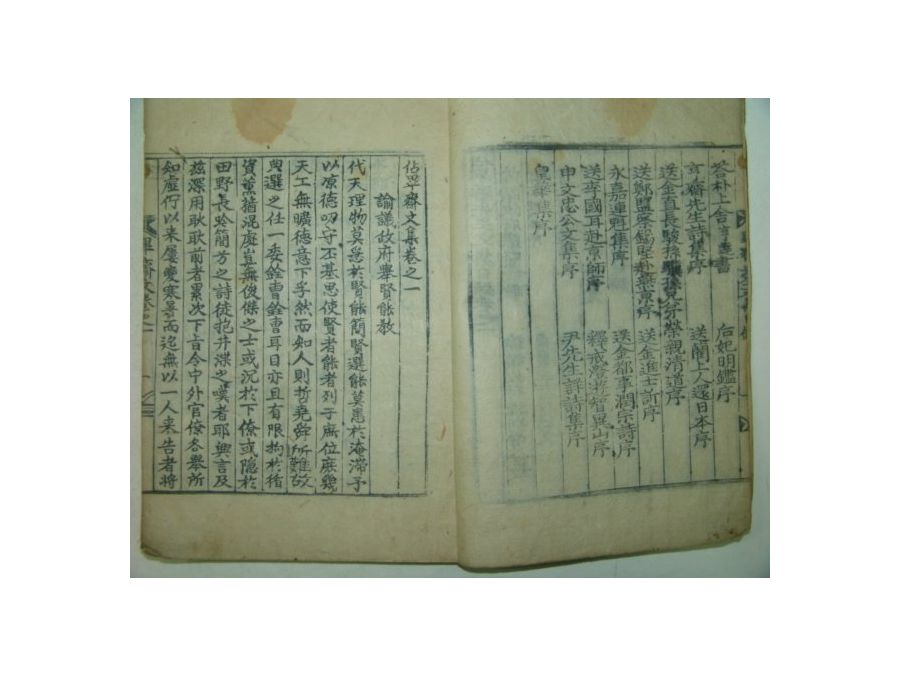 答朴上舍書
后妃明鑑序
亨齋先生詩集序
送誾上人還日本序
送金直長駿孫驥孫兄弟榮親清道序
送鄭監察錫堅赴燕京序
送金進士訢序
永嘉連魁集序
送金都事潤宗詩序
送李國耳赴京師序
釋戒澄遊智異山序
申文忠公文集序
尹先生詳詩集序
皇華集序
佔畢齋文集卷之一
諭議政府舉賢能教
代天理物莫急於賢能簡賢選能莫患於淹滯予
以涼德叨守丕基思使賢者能者列于庶位庶幾
天工無曠德意下孚然而知人則哲堯舜所難故
典選之任一委銓曹銓曹耳目亦且有限拘於循
資薰蕕混處豈無俊傑之士或沉於下僚或隱於
田野長吟簡兮之詩徒抱井渫之嘆者耶興言及
茲深用耿耿前者累次下旨令中外官僚各舉所
知虛佇以來屢變寒暑而迄無以一人来告者將